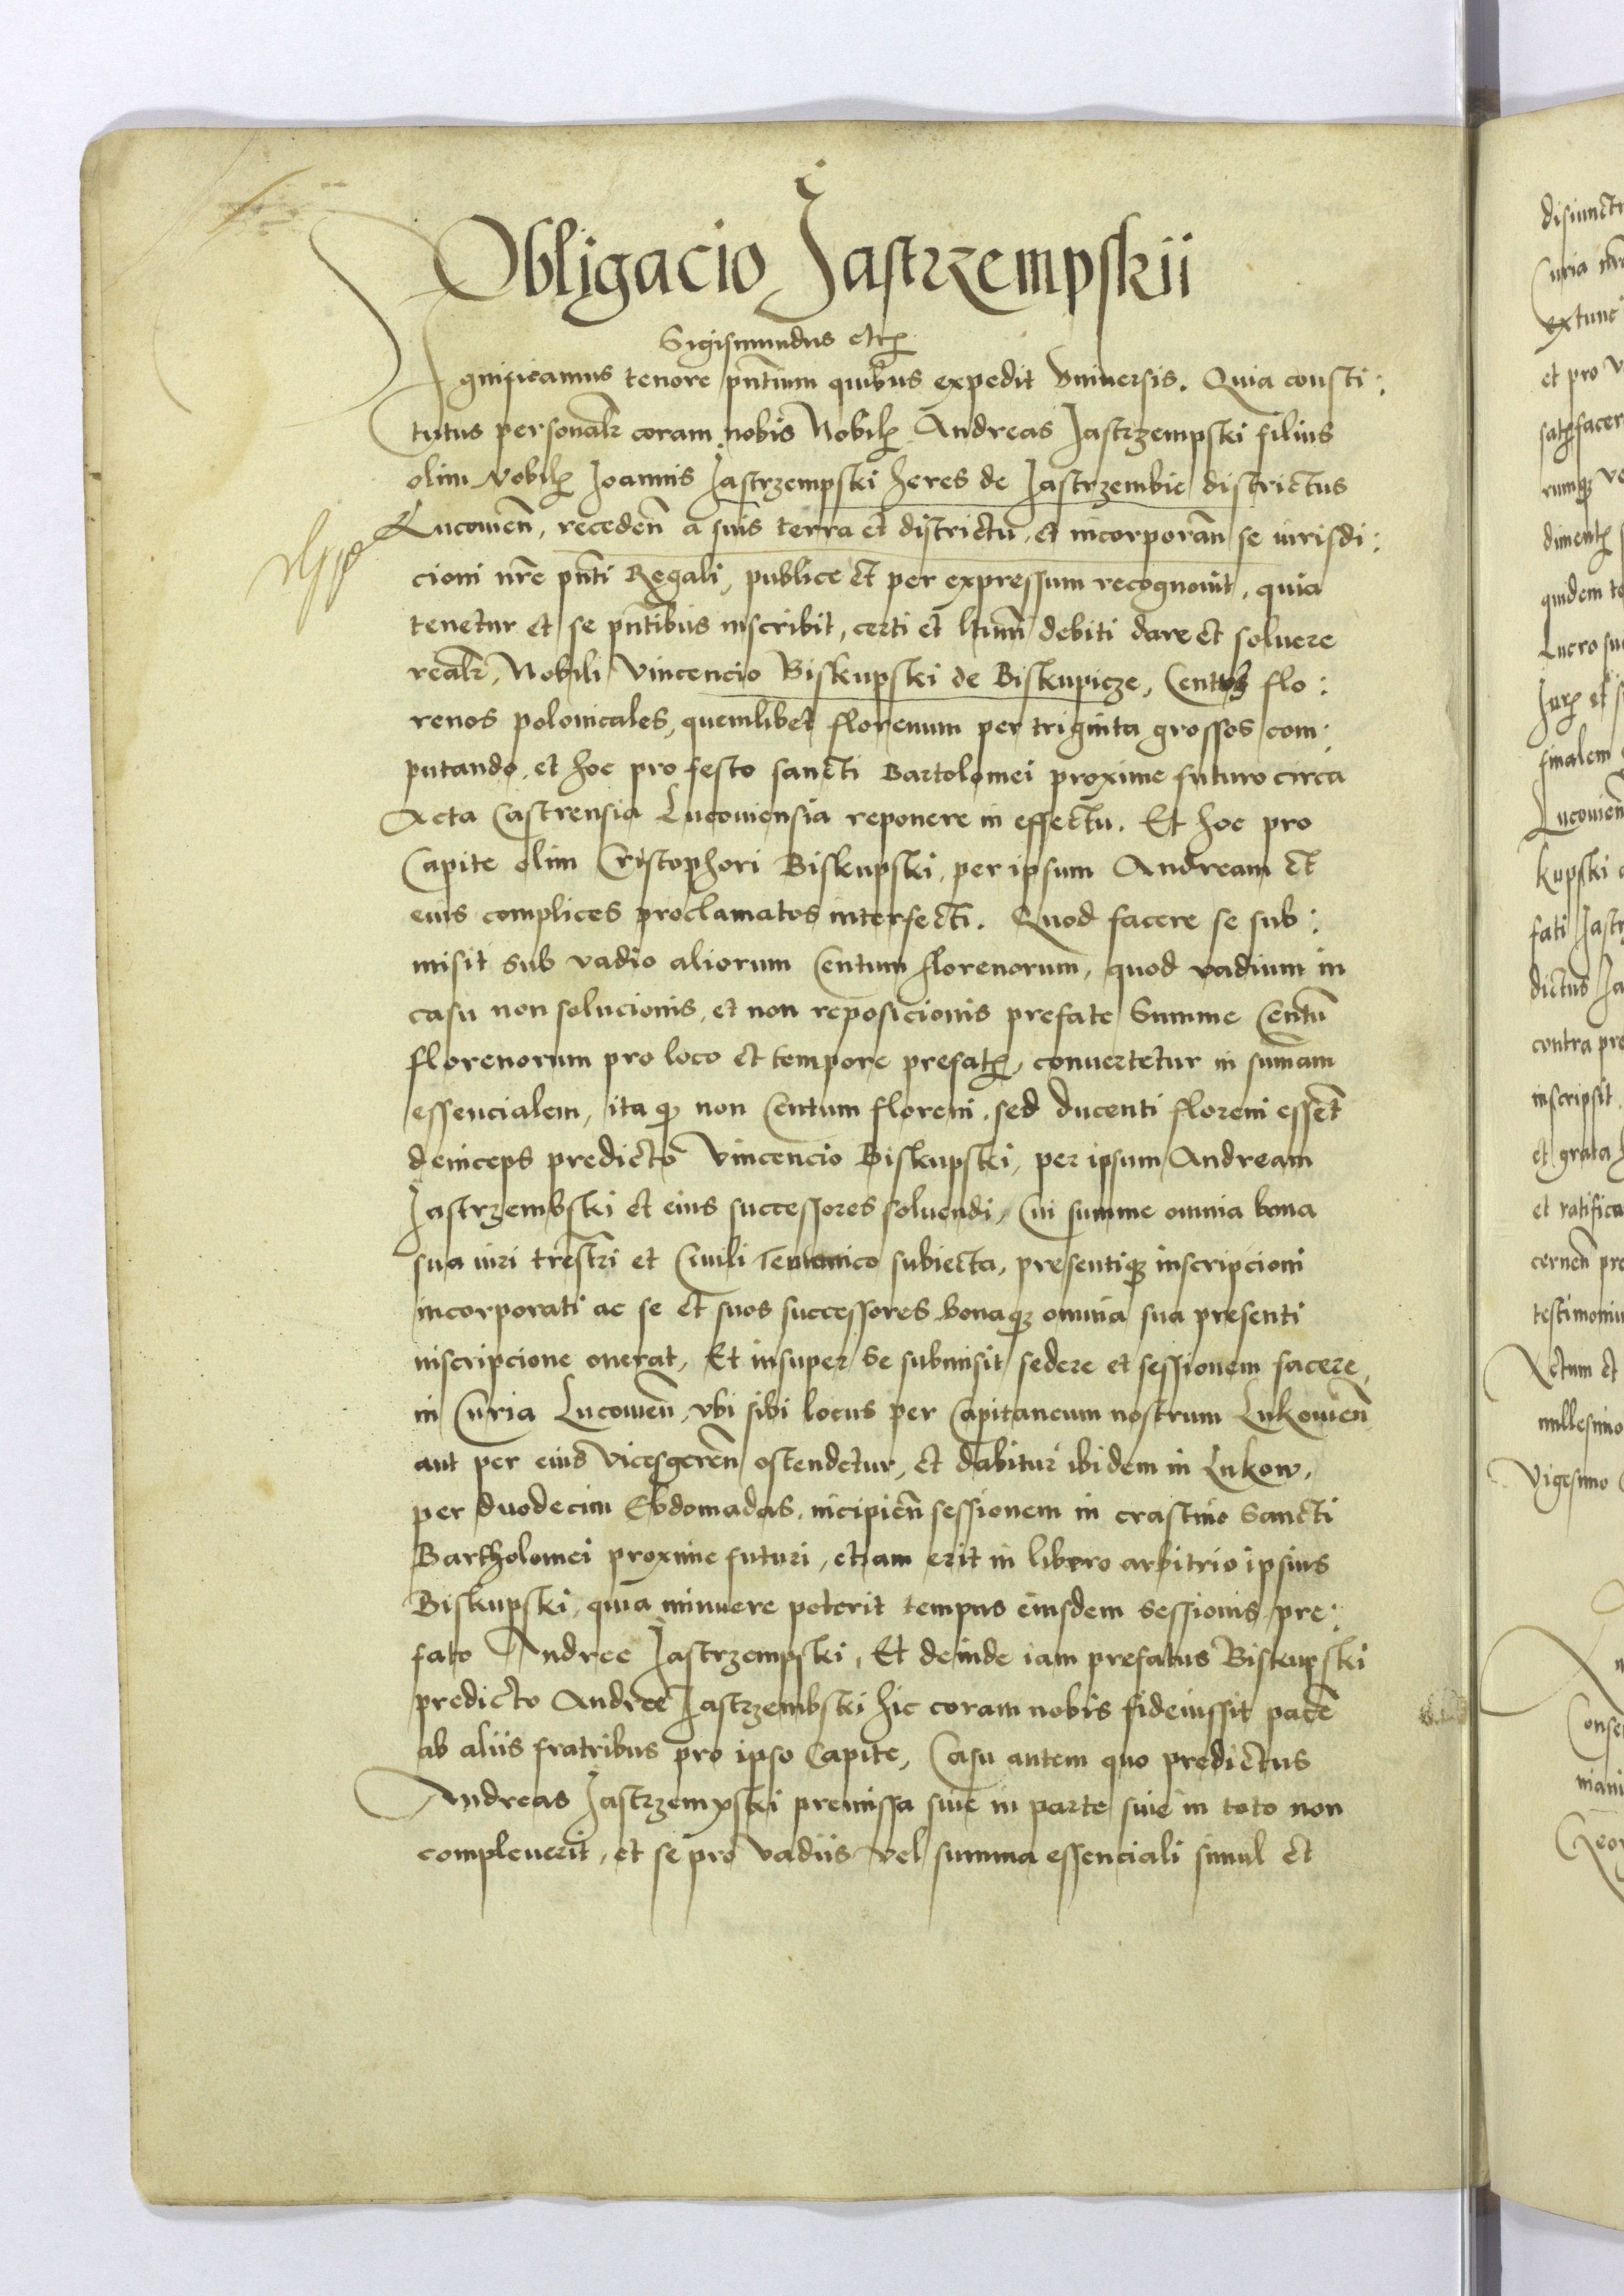 Obligacio Jastrzempskii
Sigismundus etc
Significamus tenore pñtium quibus expedit vniuersis. Quia consti:
tutus personalr coram nobis Nobilȩ Andreas Jastrzempski filius
olim Nobilȩ Joannis Jastrzempski heres de Jastrzembie districtus
Lucouieñ, recedeñ a suis terra et districtu, et incorporañ se iurisdi:
cioni nr̃e pñti Regali, publice et per expressum recognouit, quia
tenetur et se pñtibus inscribit, certi et ltimi debiti dare et soluere
realr, Nobili Vincencio Biskupski de Biskupicze, Centum flo:
renos polonicales, quemlibet florenum per triginta grossos com:
putando, et hoc pro festo sancti Bartolomei proxime futuro circa
Acta Castrensia Lucouiensia reponere in effectu. Et hoc pro
Capite olim Cristophori Biskupski, per ipsum Andream et
eius complices proclamatos intersecti. Quod facere se sub:
misit sub vadio aliorum Centum florenorum, quod vadium in
casu non solucionis, et non reposicionis prefate Summe Centũ
florenorum pro loco et tempore prefatȩ, conuertetur in sumam
essencialem, ita qȝ non Centum floreni, sed ducenti floreni esset̃
deinceps predicto Vincencio Biskupski, per ipsum Andream
Jastrzembski et eius successores soluendi, Cui summe omnia bona
sua iuri tr̃estri et Ciuili Teutonico subiecta, presentiqȝ inscripcioni
incorporati ac se et suos successores bonaqȝ omnia sua presenti
inscripcione onerat, Et insuper se submisit sedere et sessionem facere,
in Curia Lucouieñ, vbi sibi locus per Capitaneum nostrum Lukouieñ
aut per eius Vicesgereñ ostendetur, et dabitur ibidem in Lukow,
per duodecim Ebdomadas, incipieñ sessionem in crastino Sancti
Bartholomei proxime futuri, etiam erit in libero arbitrio ipsius
Biskupski, quia minuere poterit tempus eiusdem Sessionis pre:
fato Andree Jastrzempski, Et deinde iam prefatus Biskupski
predicto Andree Jastrzembski hic coram nobis fideiussit pacẽ
ab aliis fratribus pro ipso Capite, Casu autem quo predictus
Andreas Jastrzempski premissa siue in parte siue in toto non
compleuerit, et se pro vadiis vel summa essenciali simul et
disiuncti
Curia
extunc
et pro
kupski
fati
dictus
contra pre
inscripsit
et grata
et ratifica
cerneñ pre
testimoniu
Actum et
millesimo
Vigesimo